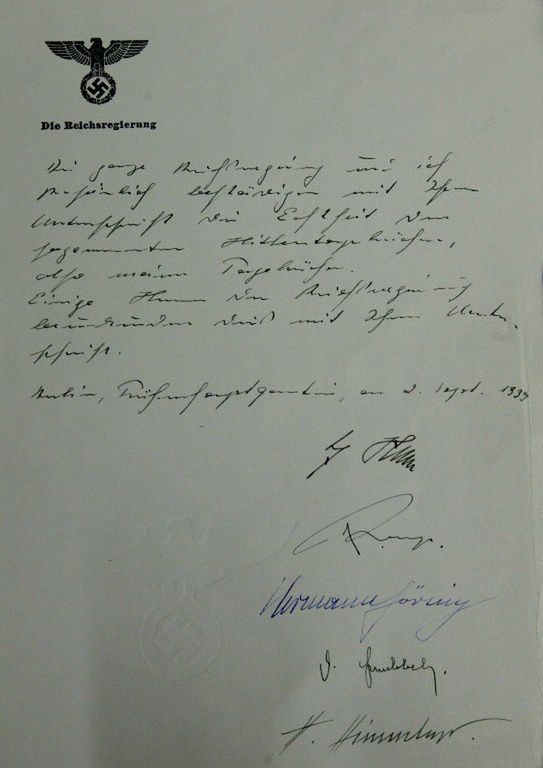 Die Reichsregierung
Die ganze Reichsregierung und ich
persönlich bestätigen mit Ihrer
Unterschrift die Echtheit der
sogenannten Hitlertagebücher,
also meiner Tagebücher.
Einige Herren der Reichsregierung
bekunden dies mit Ihrer Unter-
schrift.
Berlin, Führerhauptquartier, am 2. Sept. 1939
Hermann Göring
H. Himmler